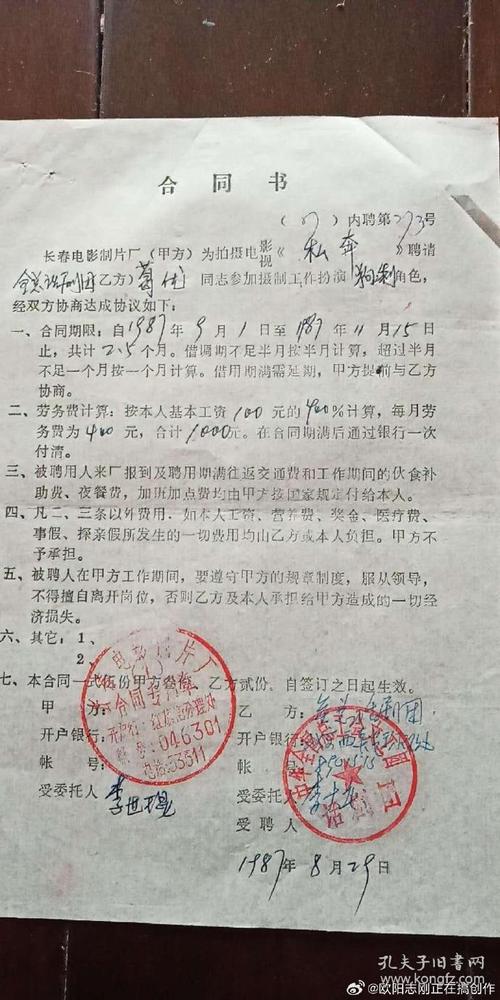 合同书
(87)内聘第273号
长春电影制片厂(甲方)为拍摄电影视《私奔》聘请
全总话剧团乙方)葛优同志参加摄制工作扮演 角色,
经双方协商达成协议如下:
一、合同期限:自1987年9月1日至1987年11月15日
止,共计2.5个月。借调期不足半月按半月计算,超过半月
不足一个月按一个月计算。借用期满需延期,甲方提前与乙方
协商。
二、劳务费计算:按本人基本工资100元的400%计算,每月劳
务费为400元,合计1000元。在合同期满后通过银行一次
付清。
三、被聘用人来厂报到及聘用期满往返交通费和工作期间的伙食补
助费、夜餐费,加班加点费均由甲方按国家规定付给本人。
四、凡二、三条以外费用,如本人工资、营养费、奖金、医疗费、
事假、探亲假所发生的一切费用均由乙方或本人负担。甲方不
予承担。
五、被聘人在甲方工作期间,要遵守甲方的规章制度,服从领导,
不得擅自离开岗位,否则乙方及本人承担给甲方造成的一切经
济损失。
六、其它:1、
2、
七、本合同一式 份甲方 乙方贰份。自签订之日起生效。
甲方:
乙方:全总话剧团
开户银行:
开户银行:
帐号:
帐号:
受委托人 李世
受委托人 李
受聘人
电影制片厂
合同专用章
开户行:
帐号:046301
电话:53311
中华全国总工会
话剧团
1987年8月29日
孔夫子旧书网
@欧阳志刚正在搞创作